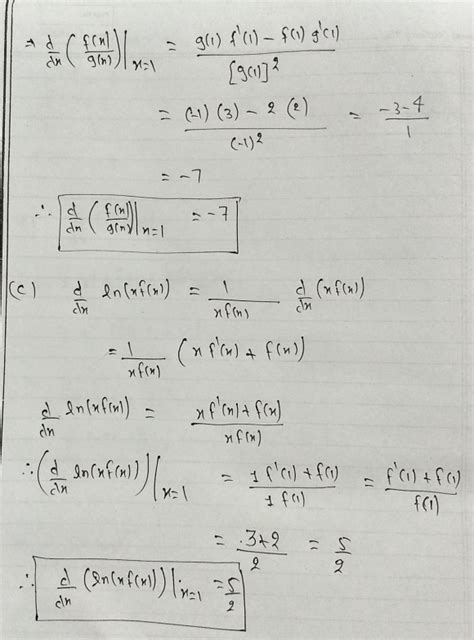 ⇒ d/dx (f(x)/g(x))|x=1 = g(1) f'(1) - f(1) g'(1) / [g(1)]^2
= (-1) (3) - 2 (2) / (-1)^2 = -3-4 / 1
= -7
∴ d/dx (f(x)/g(x))|x=1 = -7
(c) d/dx ln(xf(x)) = 1/xf(x) d/dx (xf(x))
= 1/xf(x) (x f'(x) + f(x))
d/dx ln(xf(x)) = xf'(x) + f(x) / xf(x)
∴ (d/dx ln(xf(x)))|x=1 = 1 f'(1) + f(1) / 1 f(1) = f'(1) + f(1) / f(1)
= 3+2 / 2 = 5/2
∴ d/dx (ln(xf(x)))|x=1 = 5/2